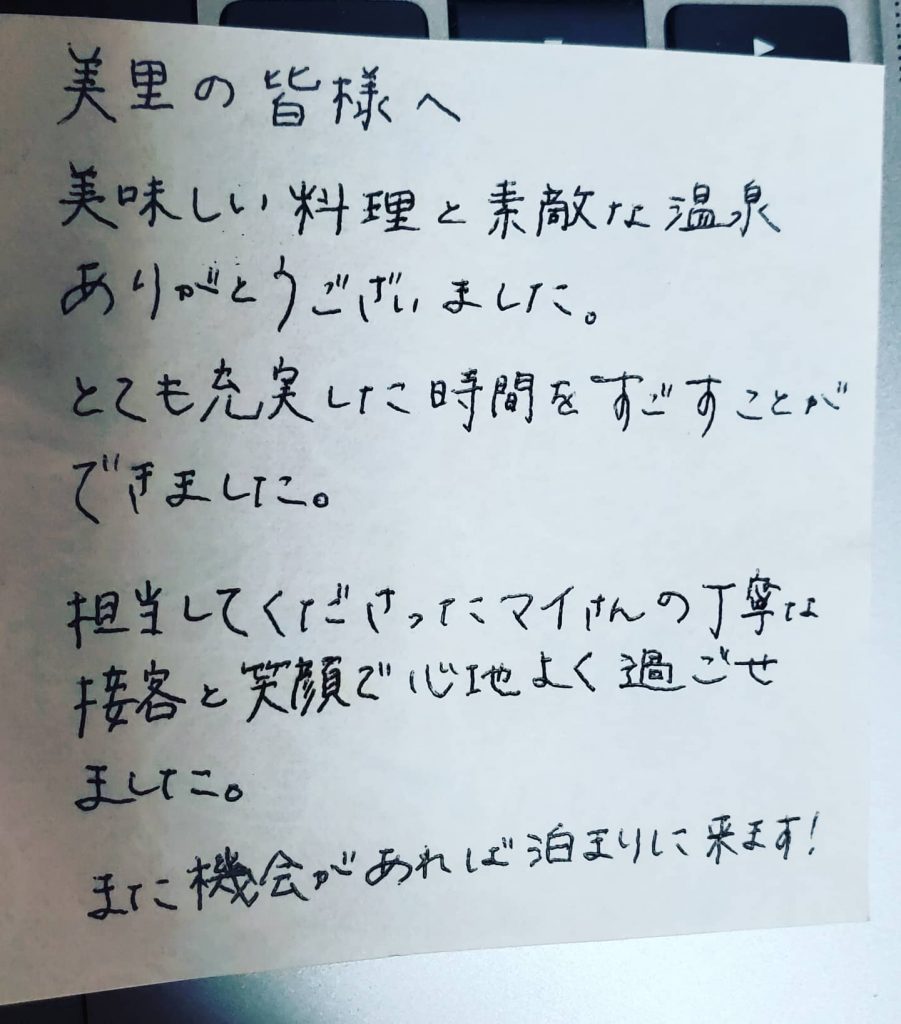 美里の皆様へ
美味しい料理と素敵な温泉
ありがとうございました。
とても充実した時間をすごすことが
できました。
担当してくださったマイさんの丁寧な
接客と笑顔で心地よく過ごせ
ました。
また機会があれば泊まりに来ます!